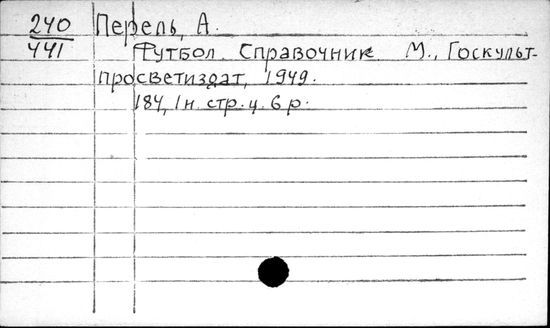 240 Перель, А.
441 Футбол. Справочник. М., Госкульт-
просветиздат, 1949.
184, 1 н. стр. ц. 6 р.